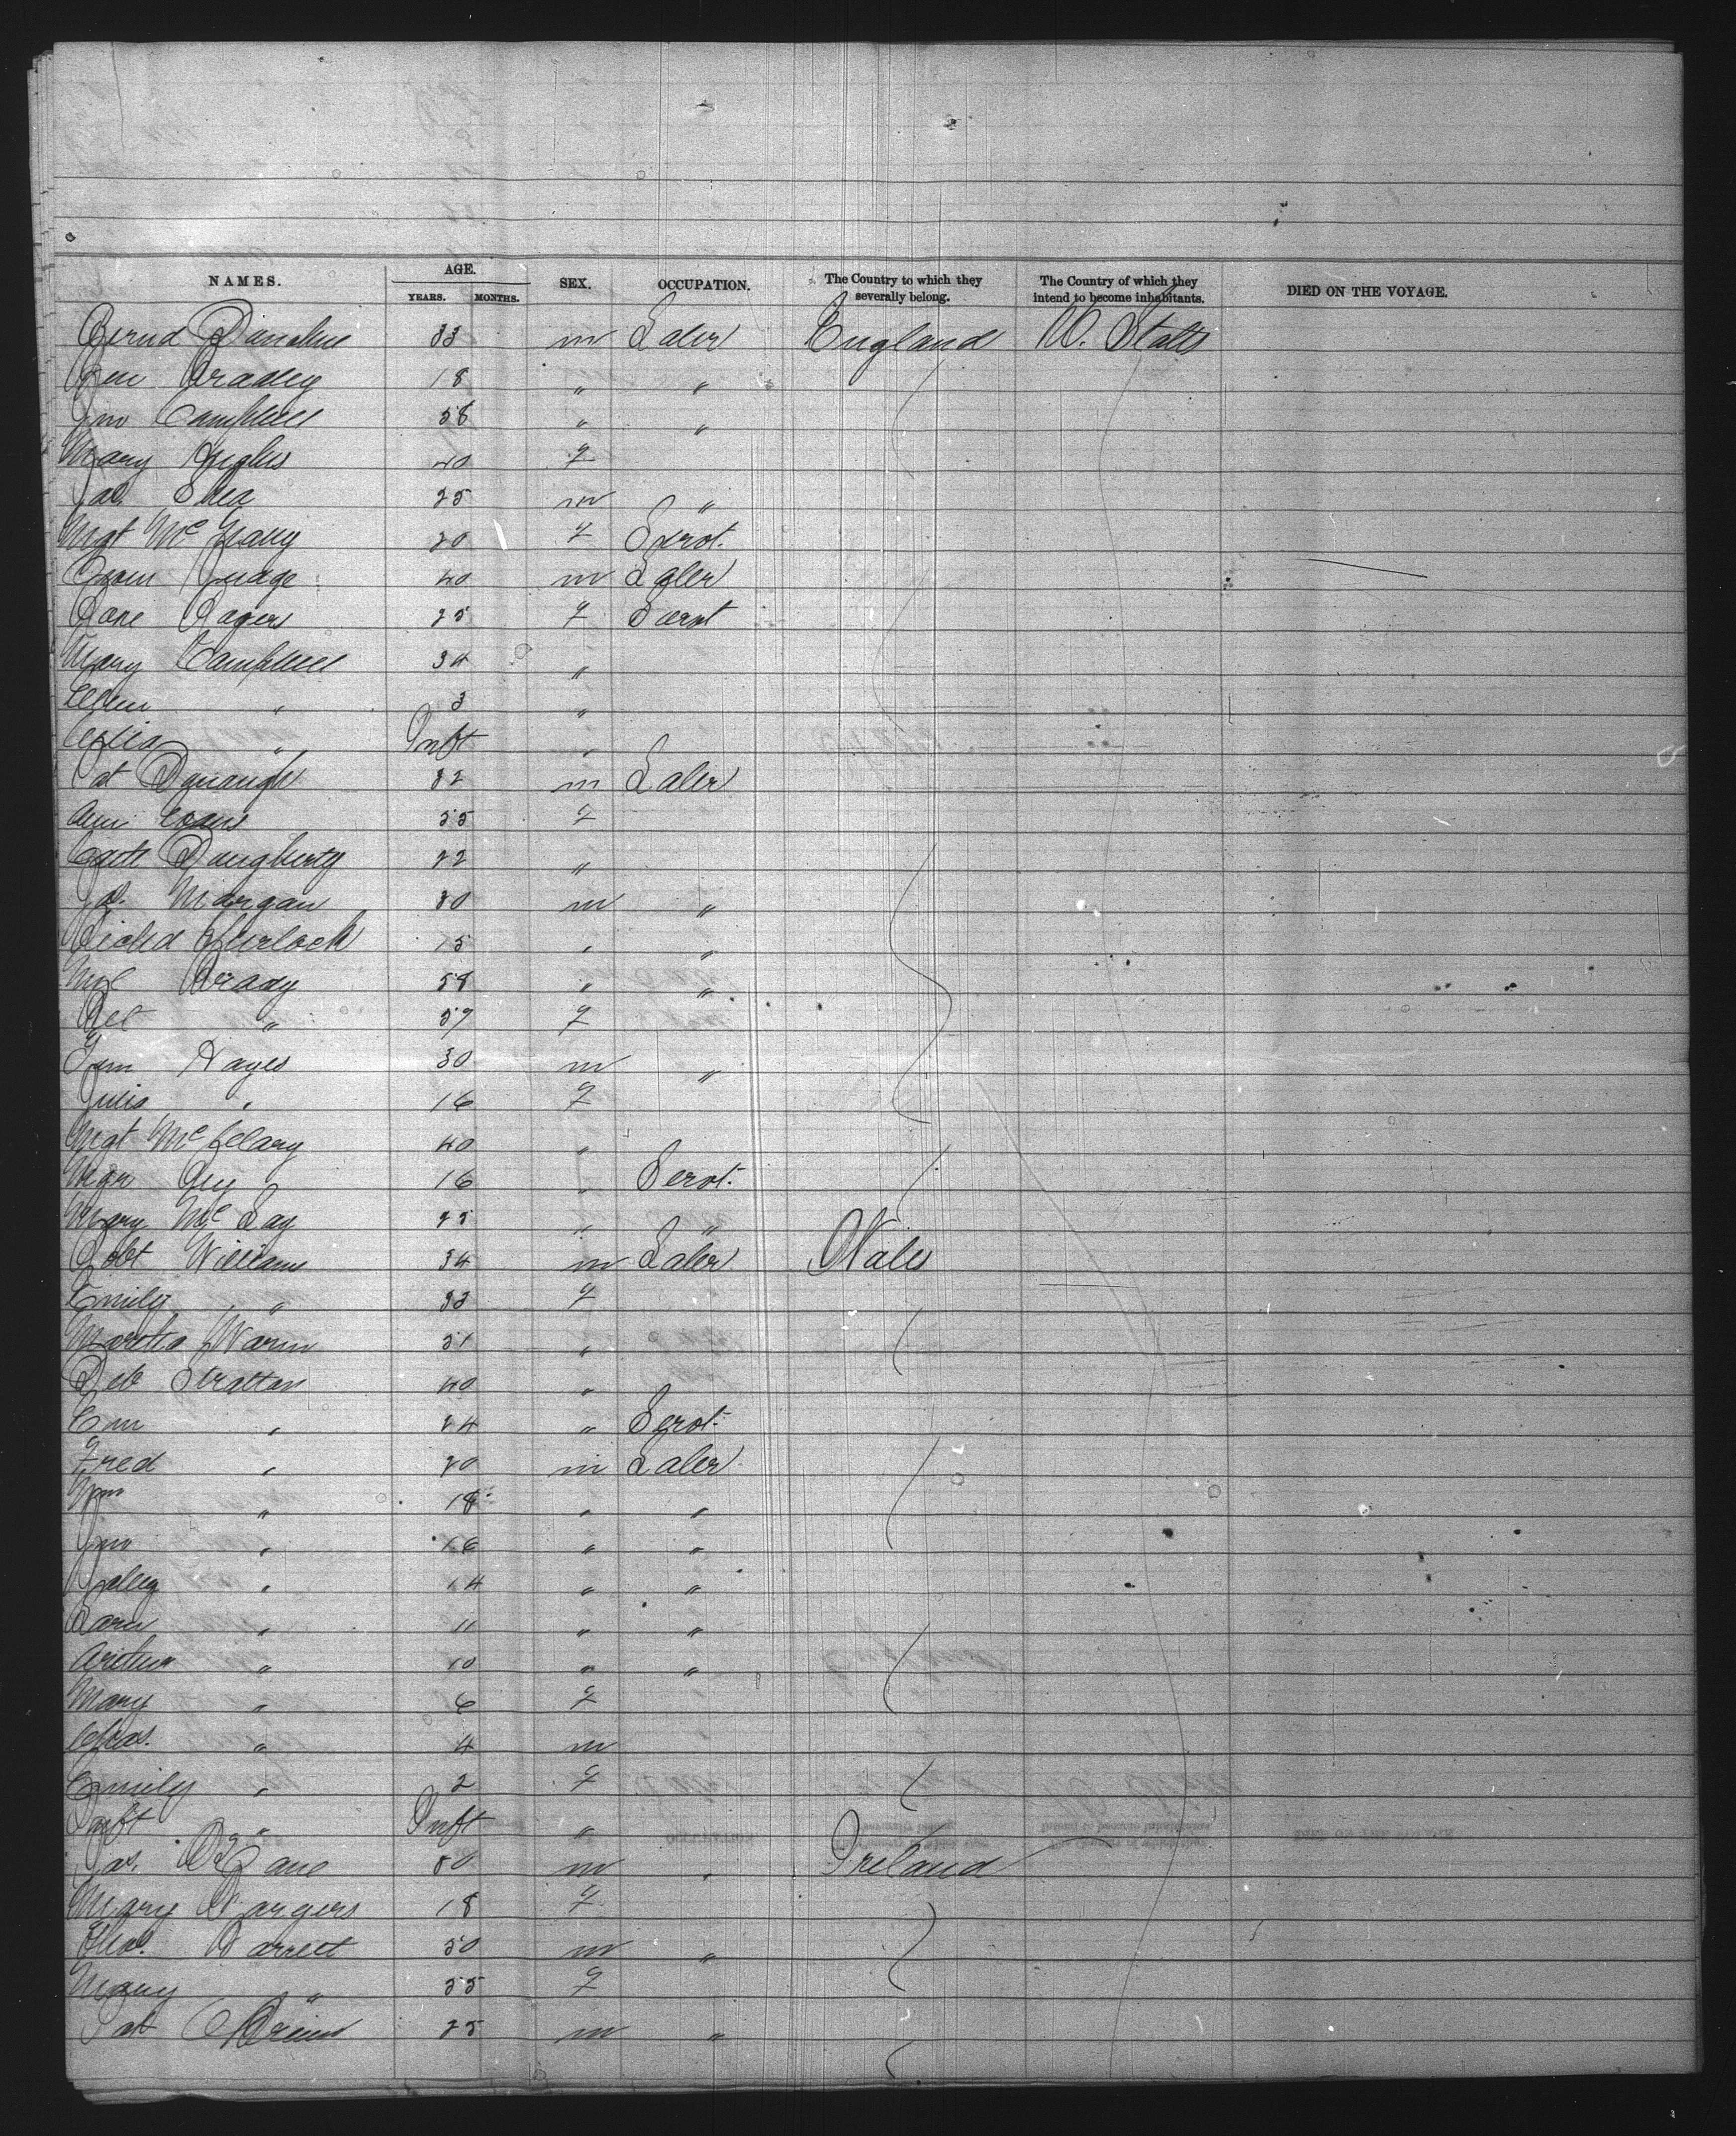 NAMES. AGE. YEARS. MONTHS. SEX. OCCUPATION. The Country to which they severally belong. The Country of which they intend to become inhabitants. DIED ON THE VOYAGE.
Bernd Donahue 33 m Laber England U. States
Ben Bradley 18 " "
Jno Campbell 58 " "
Mary Hughes 40 f
Jas. Shea 25 m "
Mgt Mc 20 f Servt.
40 m Laber
Rose Rogers 25 f Servt
Mary Campbell 34 "
Ellen " 3 "
Celia " Inft "
Pat 32 m Laber
Ann Evans 55 f
Cath Daugherty 22 "
Morgan 30 m "
Richd 15 " "
Brady 58 " "
" 57 f
Hayes 30 m "
Julia " 16 f
Mgt Mc 40 "
16 " Servt.
Mary Mc Lay 25 " "
Robt Williams 34 m Laber Wales
Emily " 33 f
Martha 51 "
Deb Stratton 40 "
Em " 24 " Servt.
Fred " 20 m Laber
Wm " 18 " "
Jno " 16 " "
" 14 " "
" 11 " "
Arthur " 10 " "
Mary " 6 f
Chas. " 4 m
Emily " 2 f
Inft " Inft "
Jas. 50 m " Ireland
Mary 18 f
Thos. Barrett 50 m "
Mary " 55 f
Pat O'Brien 25 m "